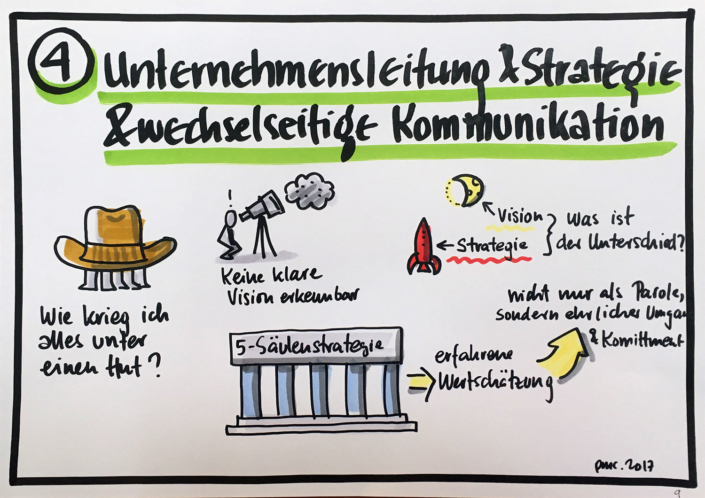 4
Unternehmensleitung & Strategie
& wechselseitige Kommunikation
!
Keine klare
Vision erkennbar
Vision
Strategie
Was ist
der Unterschied?
Wie krieg ich
alles unter
einen Hut?
5-Säulenstrategie
erfahrene
Wertschätzung
nicht nur als Parole,
sondern ehrlicher Umgan
& Komittment
2017
9